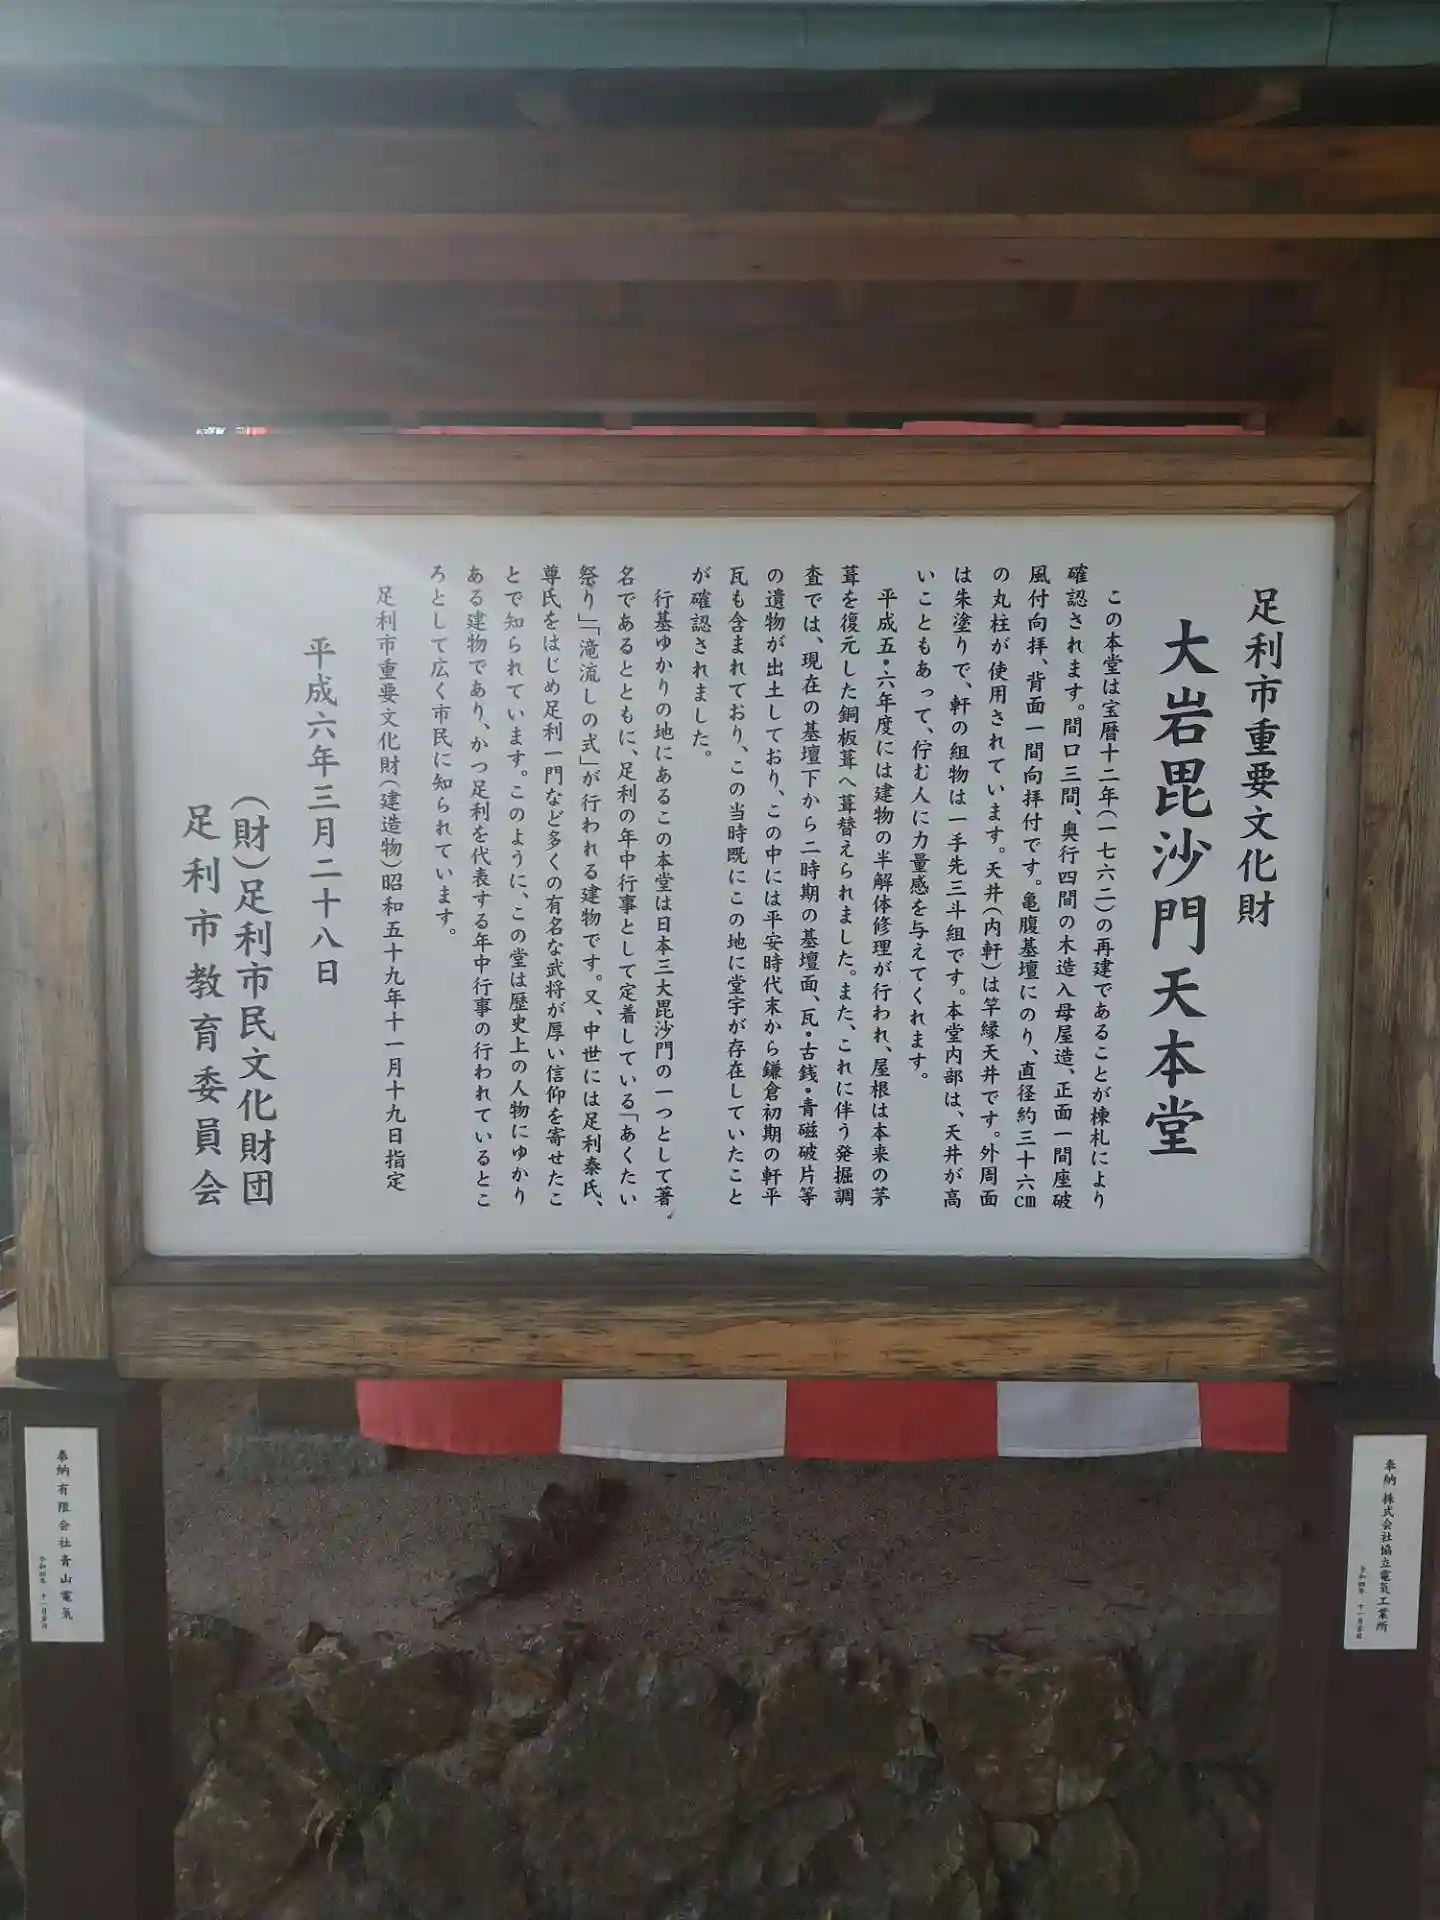 足利市重要文化財
大岩毘沙門天本堂
この本堂は宝暦十二年(一七六二)の再建であることが棟札により
確認されます。間口三間、奥行四間の木造入母屋造、正面一間座破
風付向拝、背面一間向拝付です。亀腹基壇にのり、直径約三十六cm
の丸柱が使用されています。天井(内軒)は竿縁天井です。外周面
は朱塗りで、軒の組物は一手先三斗組です。本堂内部は、天井が高
いこともあって、佇む人に力量感を与えてくれます。
平成五・六年度には建物の半解体修理が行われ、屋根は本来の茅
葺を復元した銅板葺へ葺替えられました。また、これに伴う発掘調
査では、現在の基壇下から二時期の基壇面、瓦・古銭・青磁破片等
の遺物が出土しており、この中には平安時代末から鎌倉初期の軒平
瓦も含まれており、この当時既にこの地に堂宇が存在していたこと
が確認されました。
行基ゆかりの地にあるこの本堂は日本三大毘沙門の一つとして著
名であるとともに、足利の年中行事として定着している「あくたい
祭り」「滝流しの式」が行われる建物です。又、中世には足利泰氏、
尊氏をはじめ足利一門など多くの有名な武将が厚い信仰を寄せたこ
とで知られています。このように、この堂は歴史上の人物にゆかり
ある建物であり、かつ足利を代表する年中行事の行われているとこ
ろとして広く市民に知られています。
足利市重要文化財(建造物)昭和五十九年十一月十九日指定
平成六年三月二十八日
(財)足利市民文化財団
足利市教育委員会
奉納 株式会社協立電気工業所
令和四年 十一月吉日
奉納 有限会社青山電気
令和四年 十一月吉日